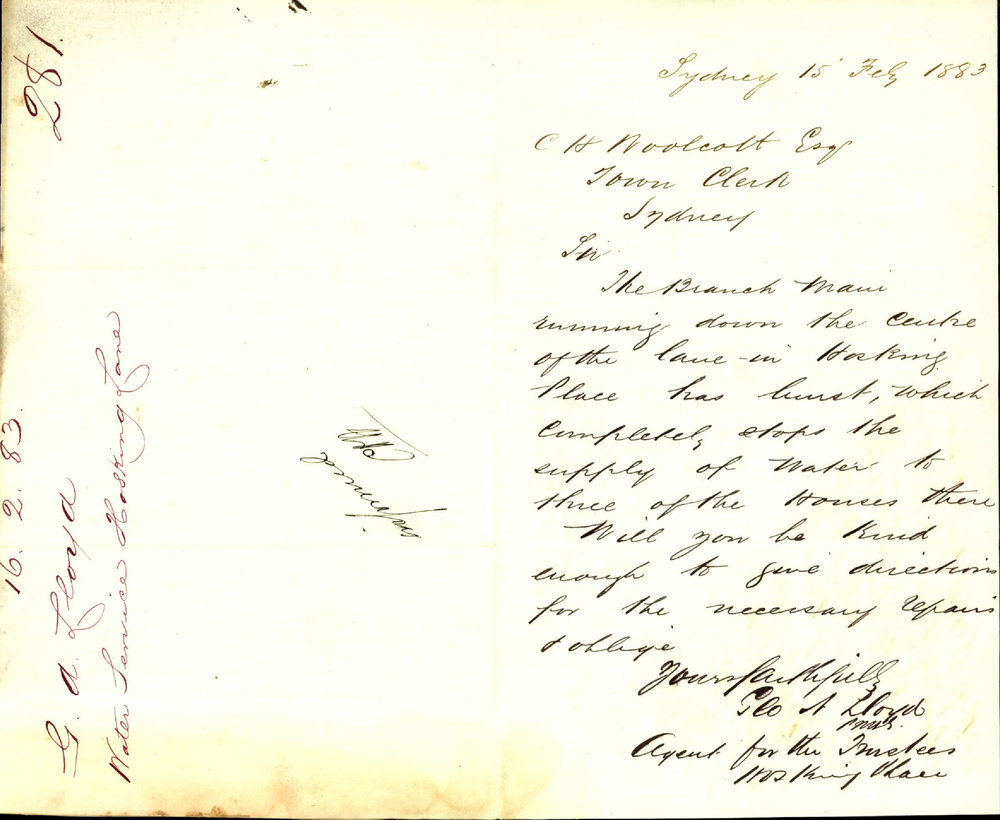 281.
16. 2. 83.
G. A. Lloyd
Water Service Hosking Lane
Sydney 15 Feby 1883
C H Woolcott Esq
Town Clerk
Sydney
Sir
The Branch Main
running down the centre
of the lane in Hosking
Place has burst, which
completely stops the
supply of Water to
three of the Houses there
Will you be kind
enough to give directions
for the necessary repairs
& oblige
Yours faithfully
Geo A Lloyd
Agent for the Trustees
Hosking Place